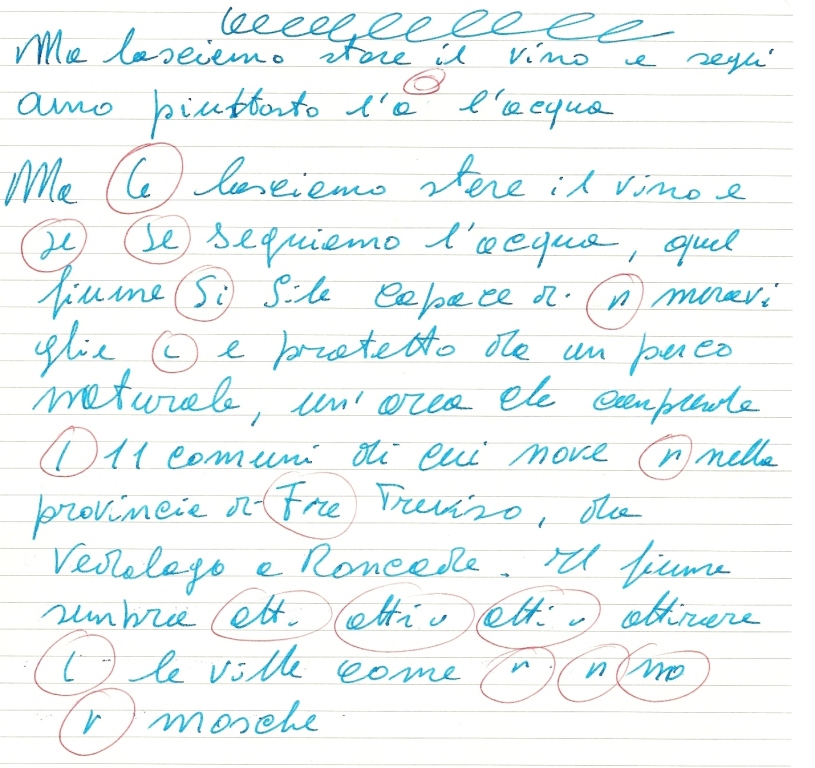 Ma lasciamo stare il vino e segui
amo piuttosto l'a l'acqua
Ma la lasciamo stare il vino e
se se seguiamo l'acqua, quel
fiume Si Sile capace di n meravi
glie c e protetto da un parco
naturale, un'area che comprende
l 11 comuni di cui nove n nella
provincia di Tre Treviso, da
Vedelago a Roncade. Il fiume
sembra atti atti atti attirare
l le ville come n n mo
r mosche